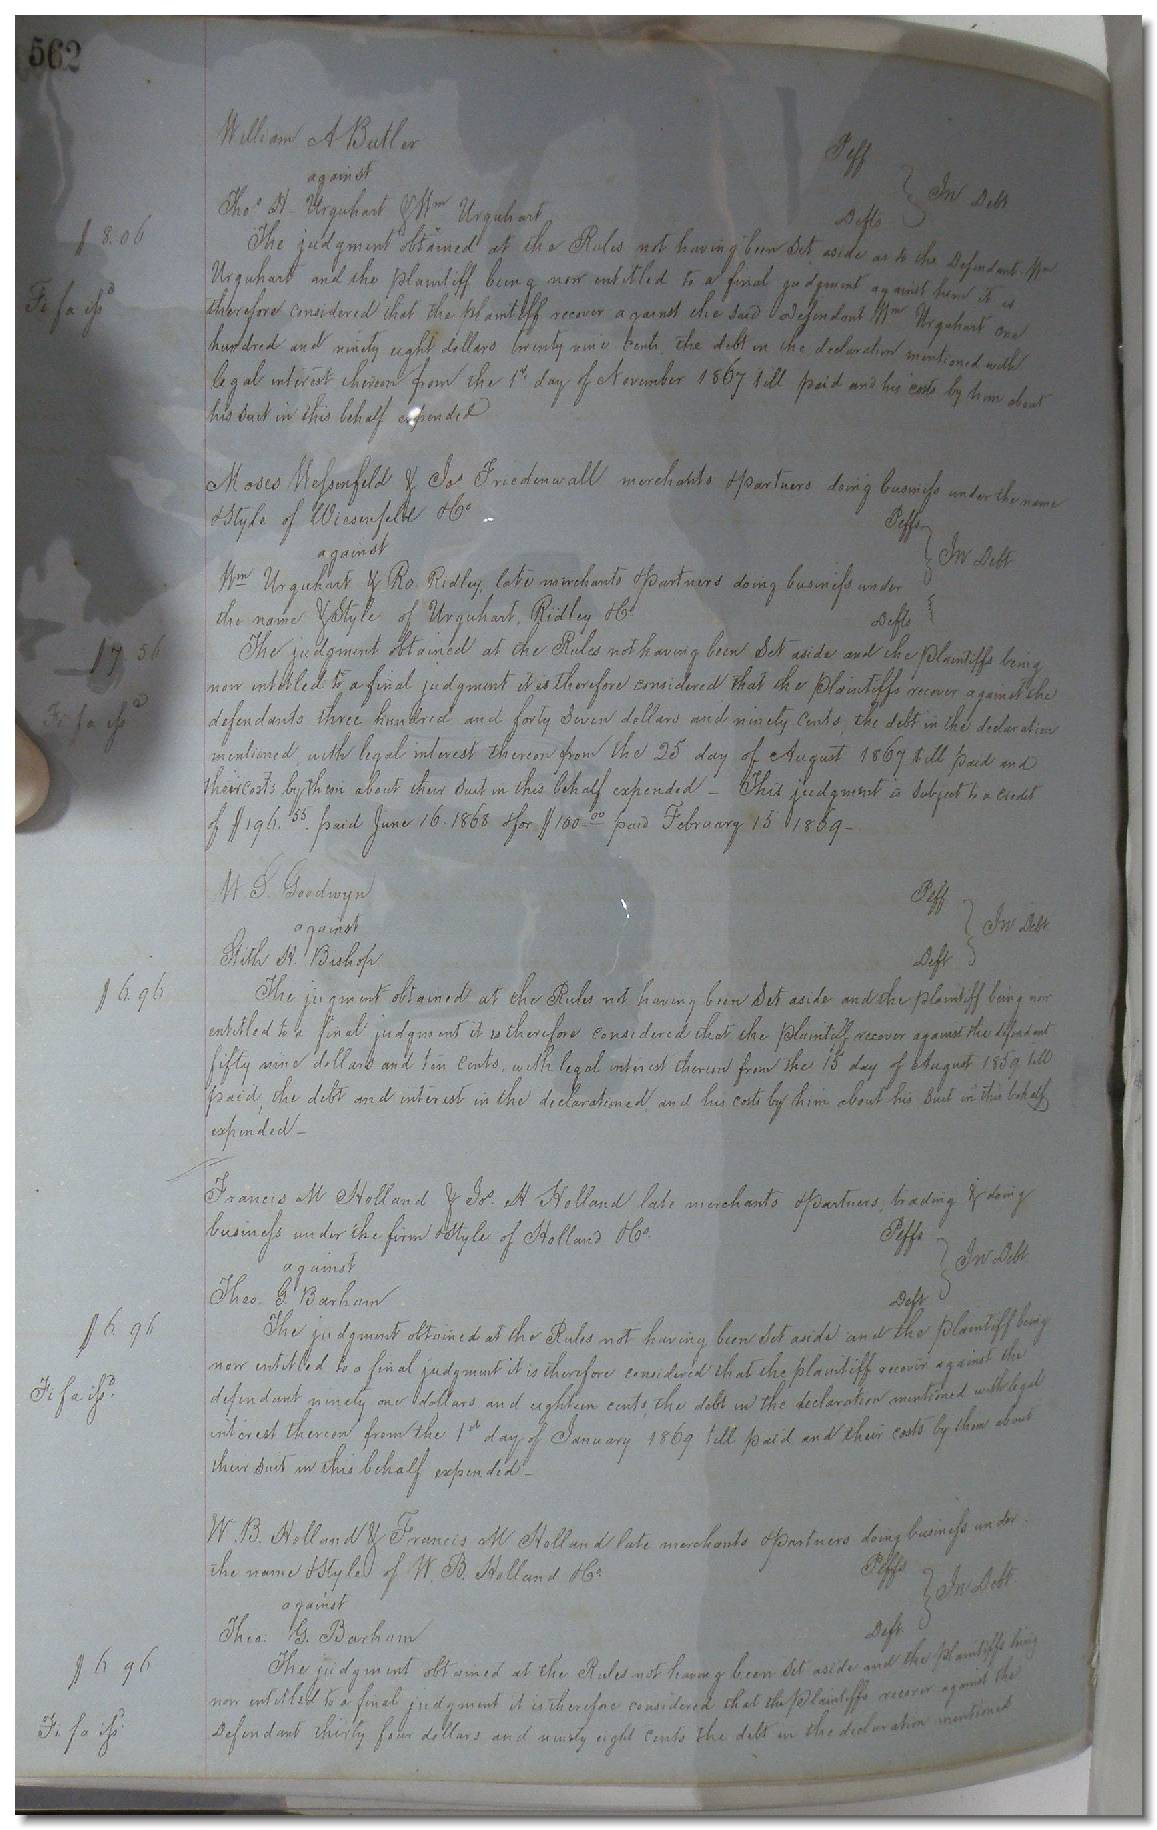 562
William A Butler Plff
against } In Debt
Thos. H. Urquhart & Wm Urquhart Defts
$8.06
The judgment obtained at the Rules not having been Set aside as to the Defendant Wm
Urquhart and the plaintiff being now entitled to a final judgment against him it is
Fi fa issd
therefore considered that the plaintiff recover against the said Defendant Wm Urquhart one
hundred and ninety eight dollars twenty nine Cents, the debt in the declaration mentioned with
legal interest thereon from the 1st day of November 1867 till paid and his costs by him about
his Suit in this behalf expended
Moses & Jos Friedenwall merchants & partners doing business under the name
& Style of Wiesenfeld & Co Plffs
against } In Debt
Wm Urquhart & Ro. Ridley, late merchants & partners doing business under
the name & Style of Urquhart, Ridley & Co Defts
17 56
The judgment obtained at the Rules not having been Set aside and the plaintiffs being
now entitled to a final judgment it is therefore considered that the plaintiffs recover against the
Fi fa issd
defendants three hundred and forty Seven dollars and ninety Cents, the debt in the declaration
mentioned, with legal interest thereon from the 25 day of August 1867 till paid and
their costs by them about their Suit in this behalf expended – This judgment is Subject to a credit
of $196.55 paid June 16. 1868 & for $100.00 paid February 15 1869–
Goodwyn Plff
against } In Debt
Stith H. Bishop Deft
$6.96
The jugment obtained at the Rules not having been Set aside and the plaintiff being now
entitled to a final judgment it is therefore considered that the plaintiff recover against the defendant
fifty nine dollars and ten cents, with legal interest thereon from the 15 day of August 1859 till
paid, the debt and interest in the declarationed, and his costs by him about his Suit in this behalf
expended–
Francis M Holland & Jos. H Holland late merchants & partners, trading & doing
business under the firm & Style of Holland & Co. Plffs
against } In Debt
Theo. G. Barham Deft
$6.96
The judgment obtained at the Rules not having been Set aside and the plaintiff being
now entitled to a final judgment it is therefore considered that the plaintiff recover against the
Fi fa issd.
defendant ninety one dollars and eighteen cents, the debt in the declaration mentioned with legal
interest thereon from the 1st day of January 1869 till paid and their costs by them about
their Suit in this behalf expended–
W. B. Holland & Francis M Holland late merchants & partners doing business under
the name & Style of W. B. Holland & Co Plffs
against } In Debt.
Theo. G. Barham Deft.
$6 96
The judgment obtained at the Rules not having been Set aside and the plaintiffs being
now entitled to a final judgment it is therefore considered that the plaintiffs recover against the
Fi fa iss
Defendant thirty four dollars and ninety eight cents the debt in the declaration mentioned